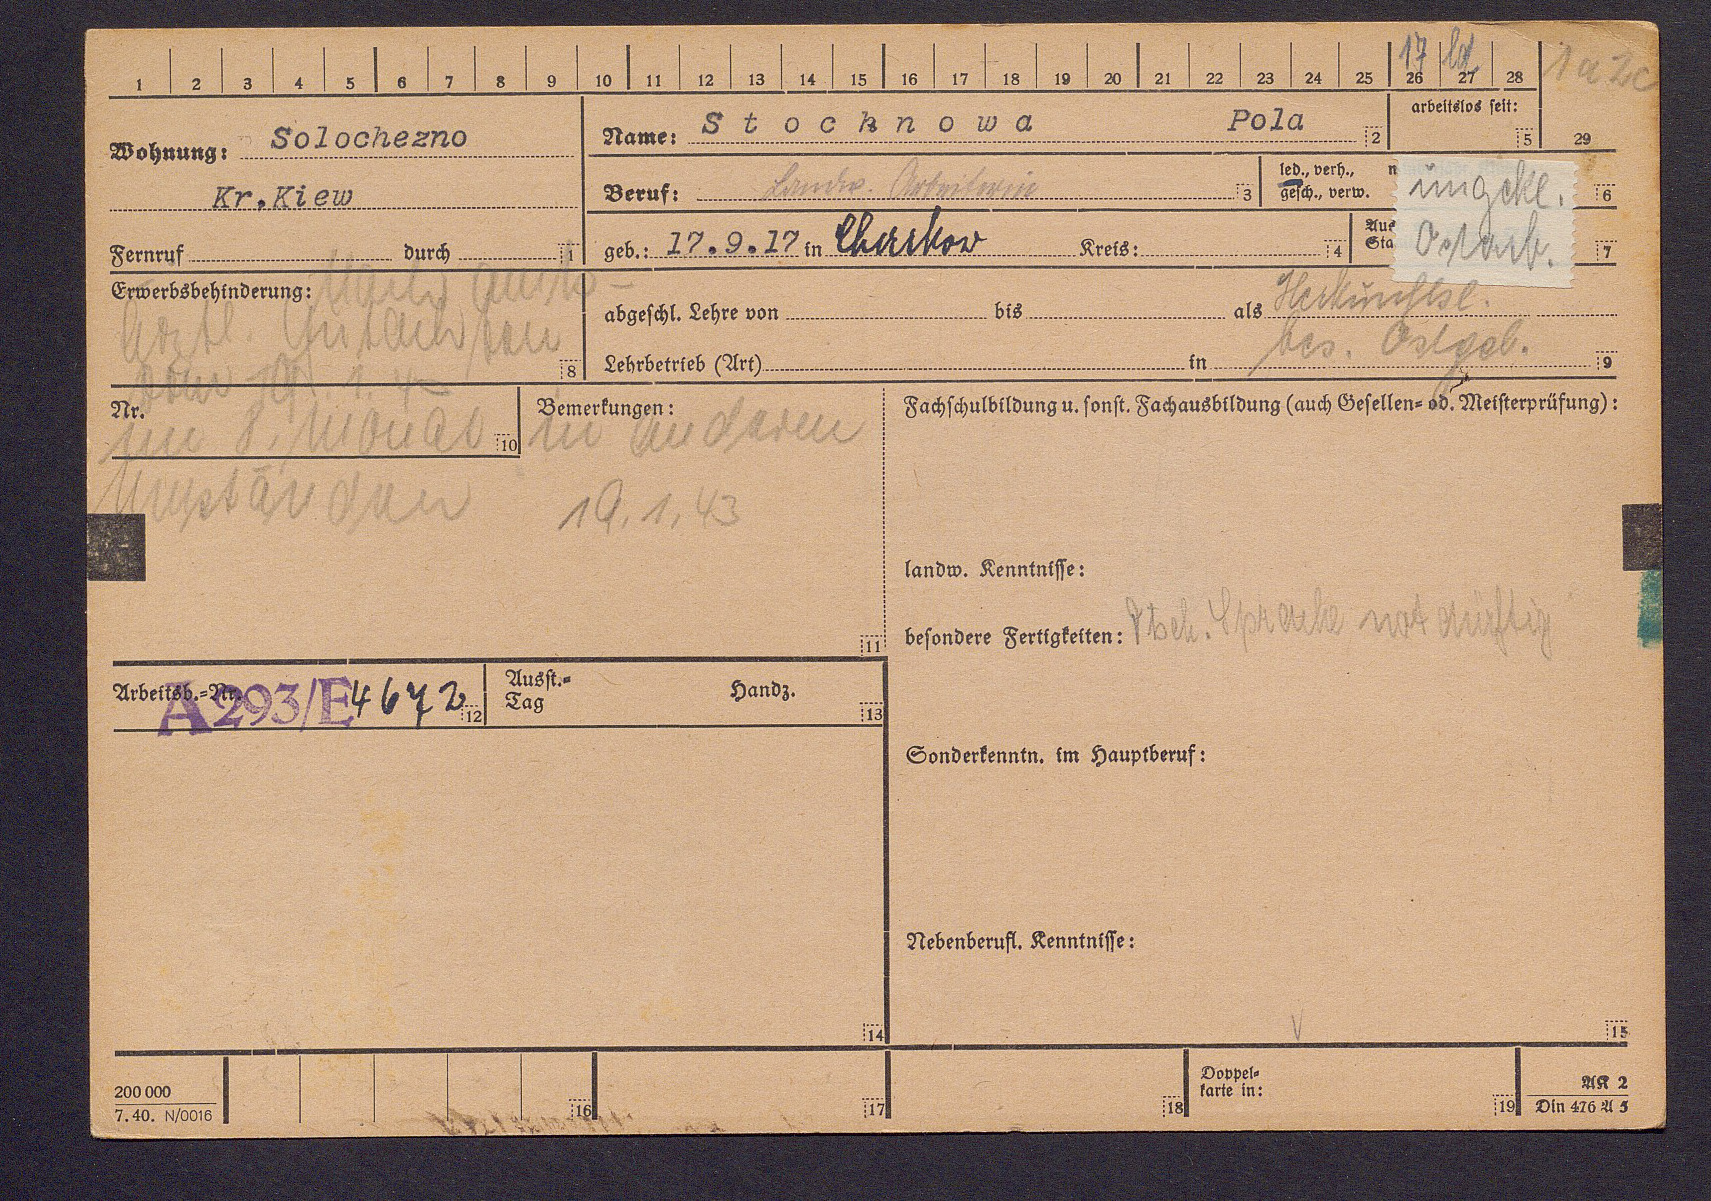 1 2 3 4 5 6 7 8 9 10 11 12 13 14 15 16 17 18 19 20 21 22 23 24 25 26 27 28 29
17
1a 2c
Wohnung: Solochezno
Kr.Kiew
Fernruf durch 1
Name: Stochnowa Pola 2
arbeitslos seit: 5
Beruf: Landw. Arbeiterin 3
led., verh.,
gesch., verw.
ungekl. 6
geb.: 17.9.17 in Charkow Kreis: 4
Aus
Sta
Ostarb. 7
Erwerbsbehinderung: Nach amts-
ärztl. Gutachten
vom 19.1.43
im 8. Monat in anderen
Umständen 19.1.43
8
abgeschl. Lehre von bis als Herkunftsl.
bes. Ostgeb.
Lehrbetrieb (Art) in 9
Nr. 10
Bemerkungen:
11
Fachschulbildung u. sonst. Fachausbildung (auch Gesellen- od. Meisterprüfung):
landw. Kenntnisse:
besondere Fertigkeiten: Dtsch. Sprache notdürftig
Arbeitsb.-Nr. A 293/E 4672 12
Ausst.-
Tag
Handz. 13
Sonderkenntn. im Hauptberuf:
Nebenberufl. Kenntnisse:
14
15
200 000
7. 40. N/0016
16
17
18
Doppel-
karte in: 19
AK 2
Din 476 A 5